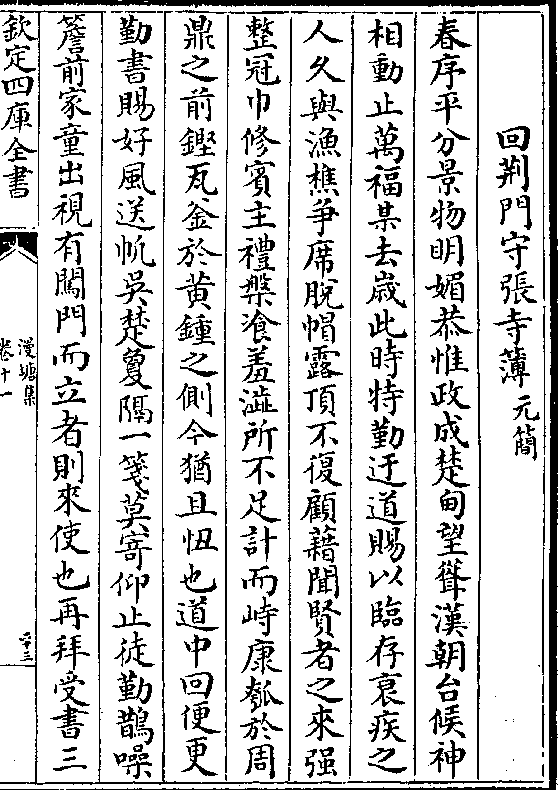 回荆門守張寺簿元簡
春序平分景物明媚恭惟政成楚甸望聳漢朝台候神
相動止萬福某去嵗此時特勤迂道賜以臨存衰疾之
人乆與漁樵爭席脱帽露頂不復顧藉聞賢者之來强
整冠巾修賓主禮槃飡羞澁所不足計而峙康瓠於周
鼎之前鏗瓦釜於黄鍾之側今猶且忸也道中回便更
勤書賜好風送帆吳楚敻隔一箋莫寄仰止徒勤鵲噪
簷前家童出視有闖門而立者則來使也再拜受書三
欽定四庫全書
漫塘集
卷十一
二十三